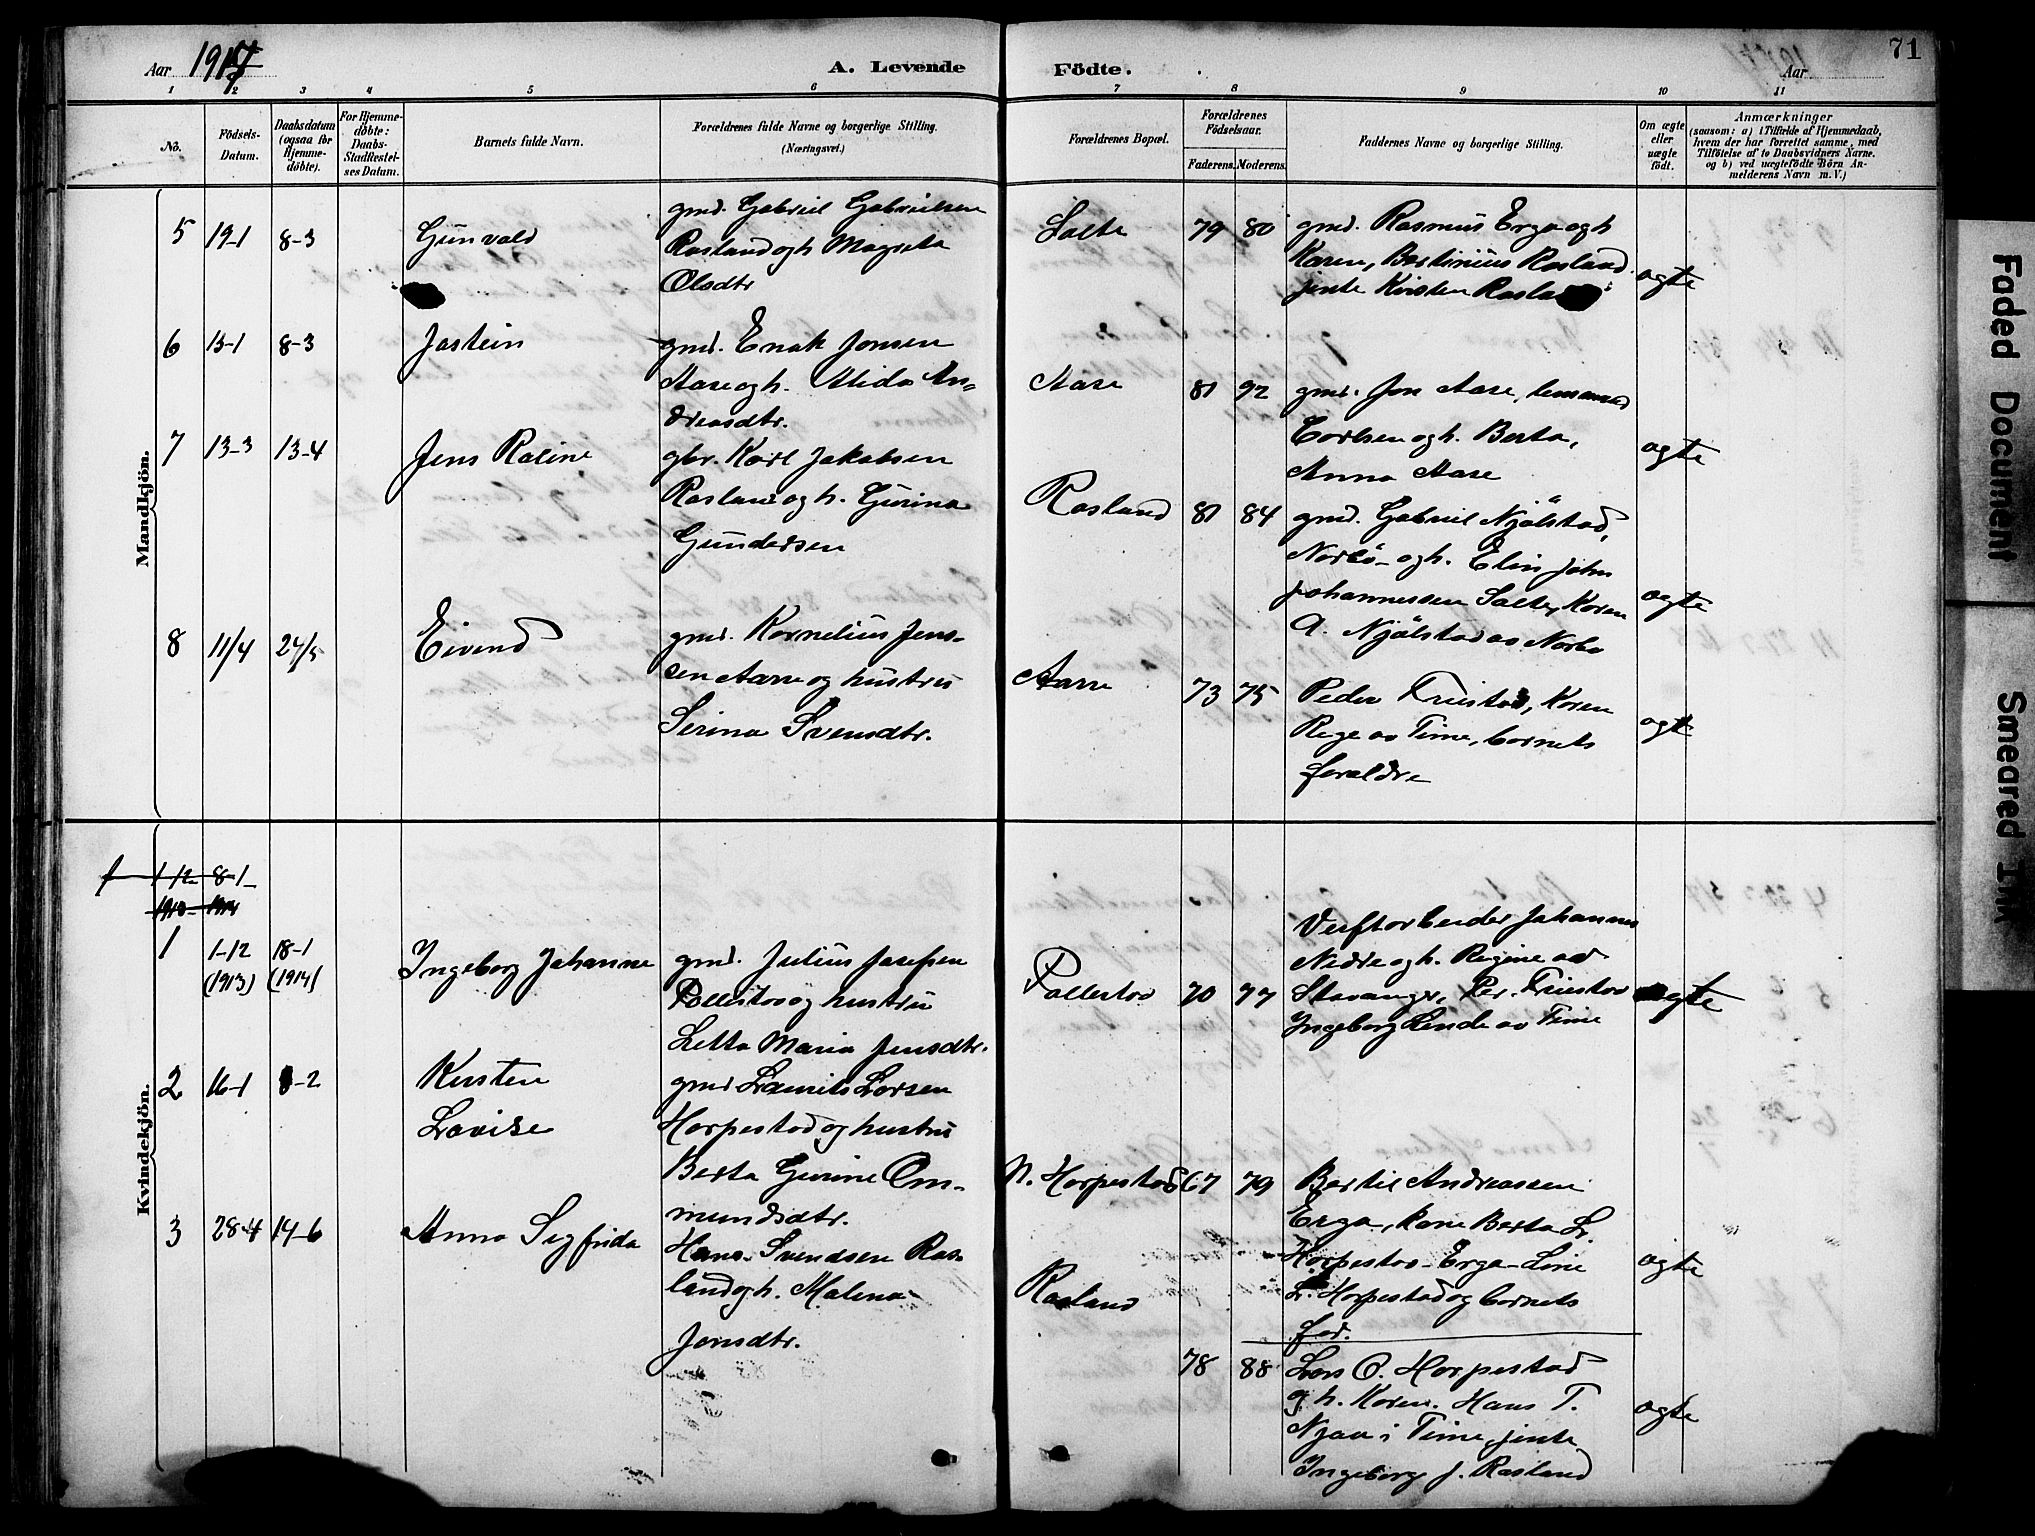 Aar 1914
A. Levende
Födte.
Aar
71
1 2 3 4 5 6 7 8 9 10 11
No.
Födsels-
Datum.
Daabsdatum
(ogsaa for
Hjemme-
døbte).
For Hjemme-
døbte:
Daabs-
Stadfæstel-
ses Datum.
Barnets fulde Navn.
Forældrenes fulde Navne og borgerlige Stilling.
(Næringsvei.)
Forældrenes Bopæl.
Forældrenes
Födselsaar.
Faderens. Moderens.
Faddernes Navne og borgerlige Stilling.
Om ægte
eller
uægte
födt.
Anmærkninger
(saasom: a) i Tilfælde af Hjemmedaab,
hvem der har forrettet samme, med
Tilföielse af to Daabsvidners Navne.
og b) ved uægtefödte Börn An-
melderens Navn m. V.)
Mandkjön.
5 19-1 8-3
Gunvald
gmd. Gabriel Gabrielsen
Rosland og h Magreta
Olsdtr
Salte
79 80
gmd. Rasmus Erga og h
Karen, Bertinius Rosland
jente Kirsten Rosland
ægte
6 13-1 8-3
Jostein
gmd. Enok Jonsen
Aase og h. Alida An=
dreasdtr.
Aase
81 92
gmd. Jon Aase, lensmand
og h. Berta,
Anna Aase
ægte
7 13-3 13-4
Jens Raline
gbr. Karl Jakobsen
Rosland og h. Gurina
Gundersen
Rosland
81 84
gmd. Gabriel Njålstad,
Norbø og h. Elin John
Johannessen Salte, Karen
A. Njålstad av Norbø
ægte
8 11/4 24/5
Eivind
gmd. Kornelius Jens-
sen Aarre og hustru
Serina Svensdtr.
Aarre
73 75
Peder Fruestad, Karen
Rege av Time, barnets
foreldre
ægte
Kvindekjön.
1 1-12 8-1-
1913 1914
1 1-12 18-1
(1913) (1914)
Ingeborg Johanne
gmd. Julius Josefsen
Pollestad og hustru
Letta Maria Jensdtr.
Pollestad
70 77
Verftarbeider Johannes
Nedre og h. Regine av
Stavanger, Per. Fruestad
Ingeborg Lende av Time
ægte
2 16-1 8-2
Kirsten
Lovise
gmd Laurits Larsen
Horpestad og hustru
Berta Gurine Om-
mundsdtr.
N. Horpestad
67 79
Bertil Andreassen
Erga, kone Berta L.
Horpestad-Erga-Line
L. Horpestad og barnets
far.
ægte
3 28-4 14-6
Anna Sigfrida
Hans Svendsen Ros-
land og h. Malena
Jonsdtr.
Rosland
78 88
Lars O. Horpestad
og h. Karen. Hans T.
Njaa i Time, jente
Ingeborg J. Rosland
ægte
Faded Document
Smeared Ink